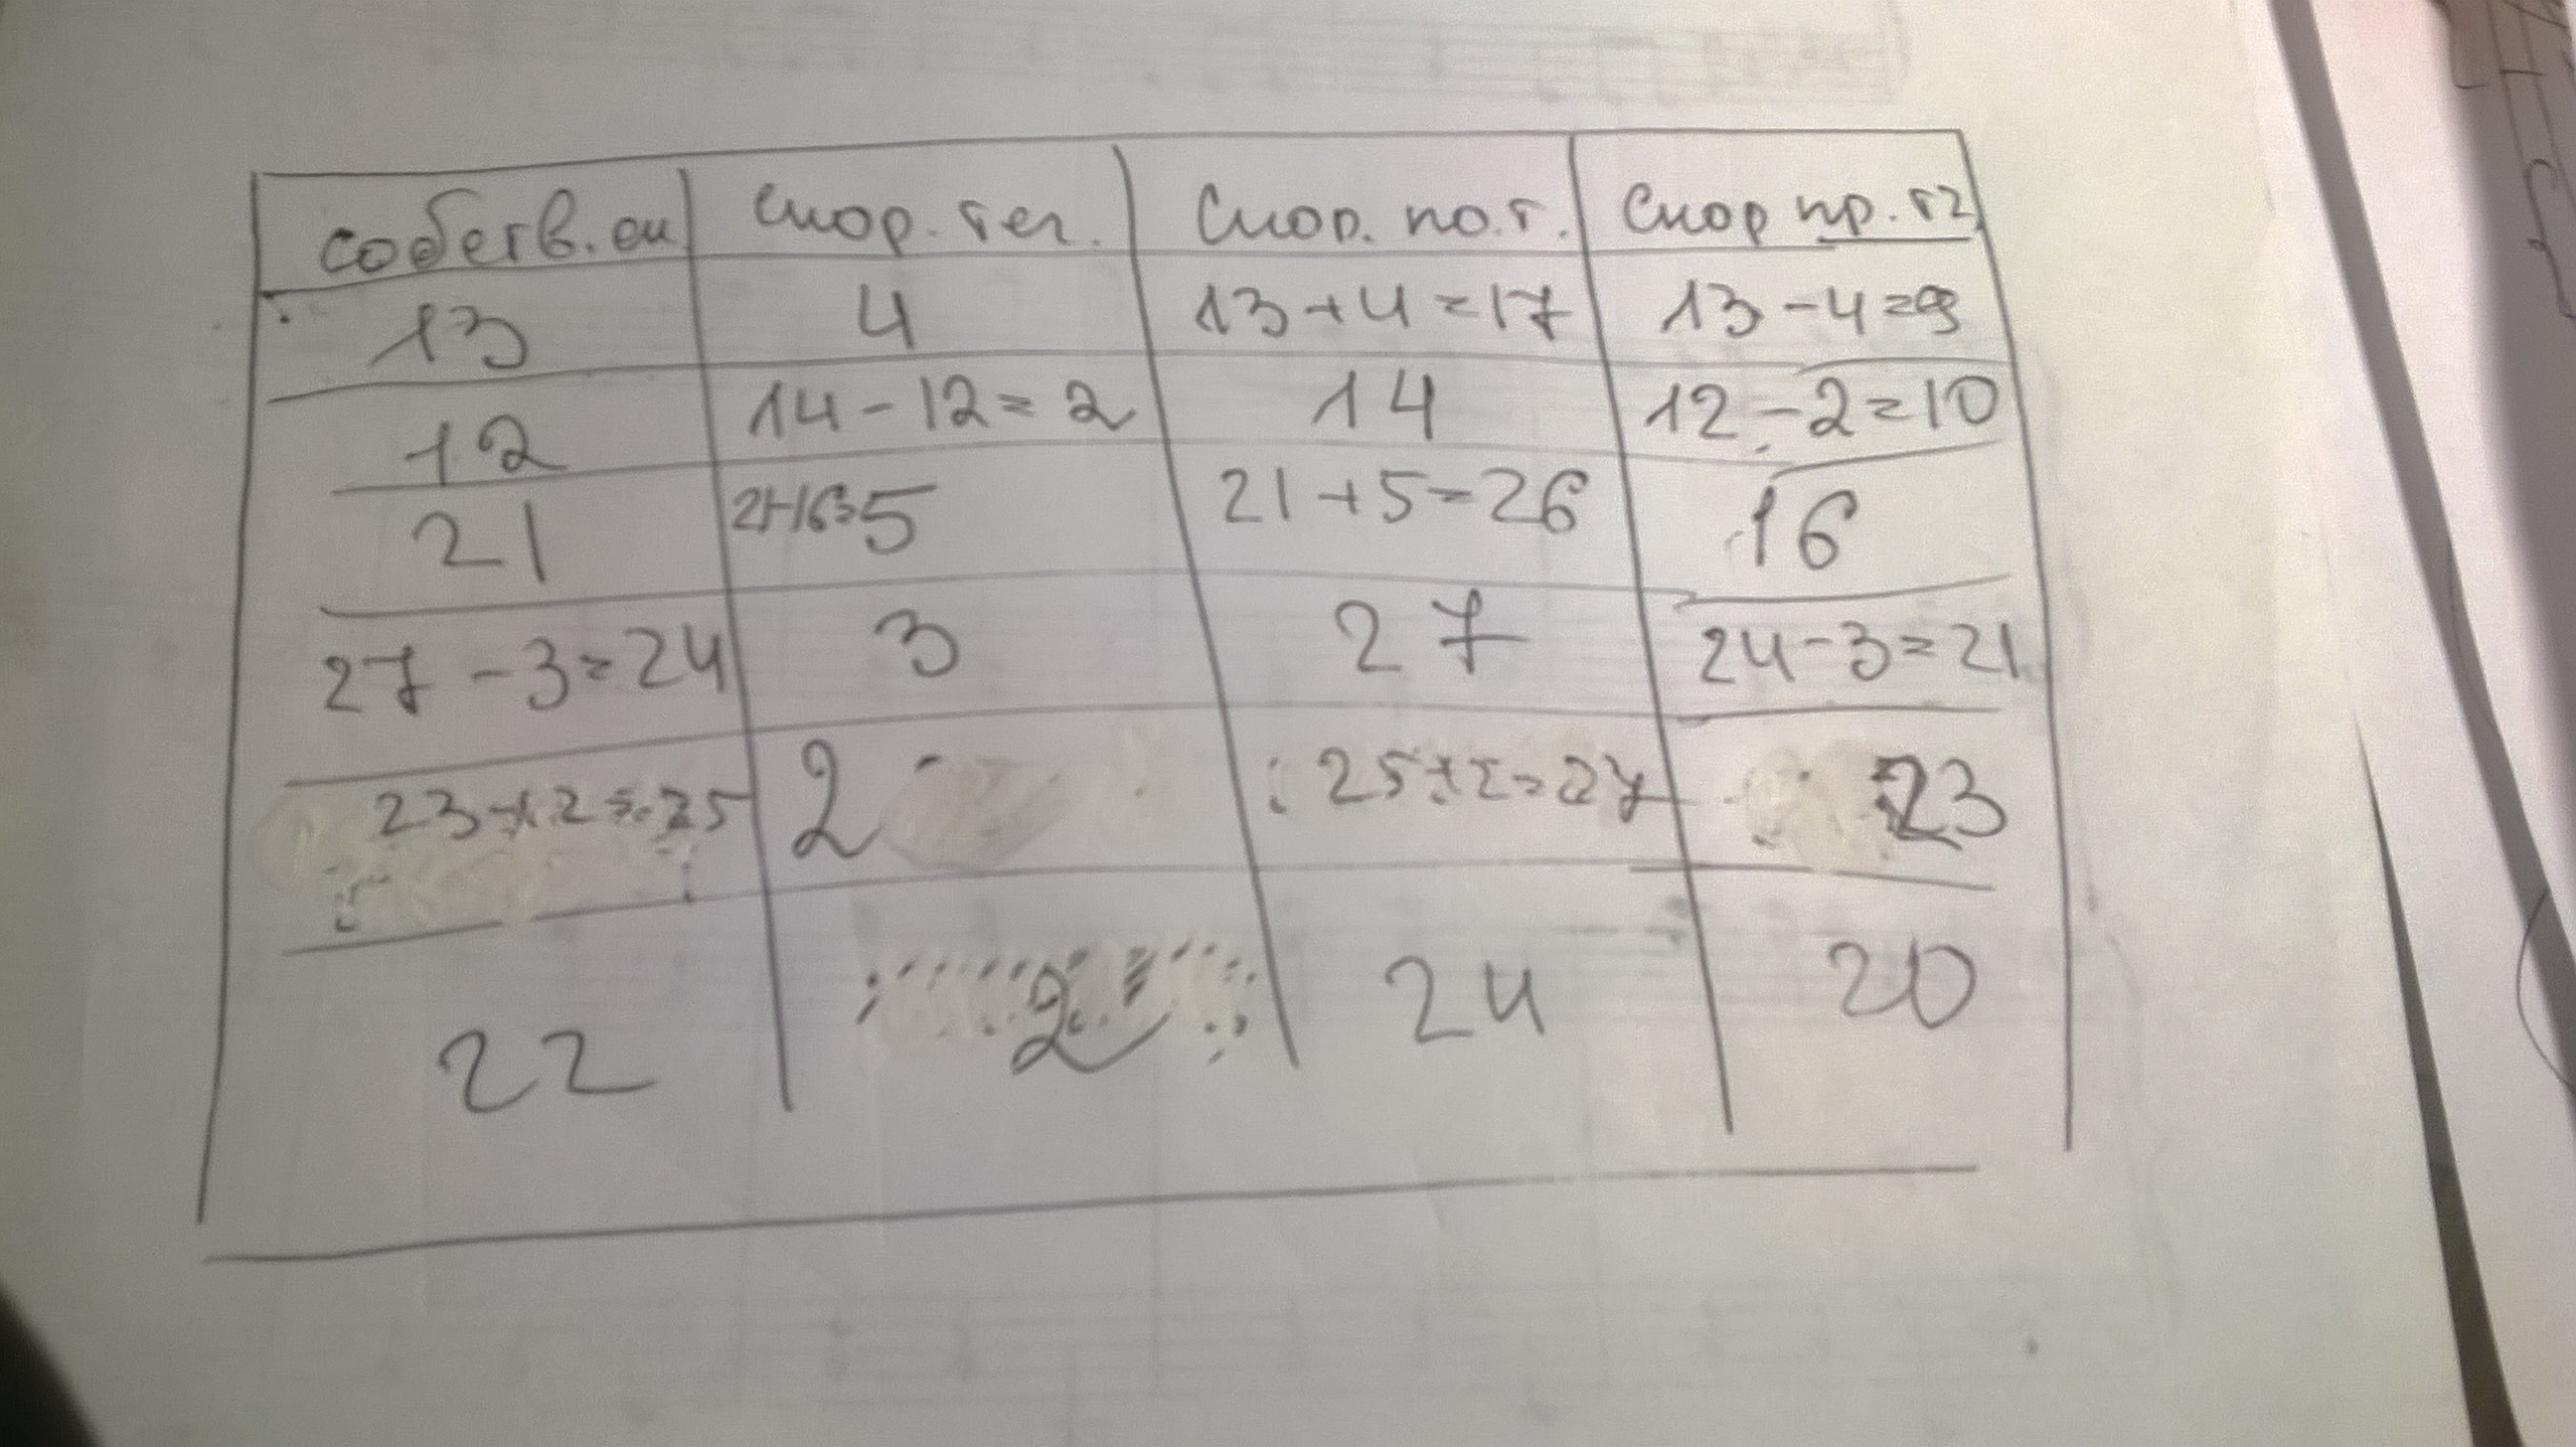 собств. ск скор. теч. скор. по. т. скор пр. тч
13 4 13+4=17 13-4=9
12 14-12=2 14 12-2=10
21 21-16=5 21+5=26 16
27-3=24 3 27 24-3=21
23+2=25 2 25+2=27 23
22 2 24 20